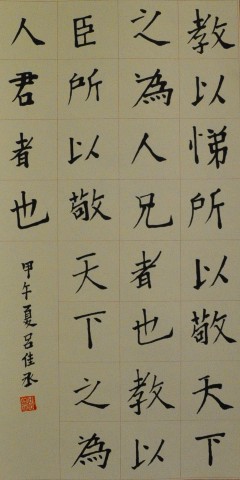 教以悌所以敬天下
之為人兄者也教以
臣所以敬天下之為
人君者也
甲午夏呂佳丞